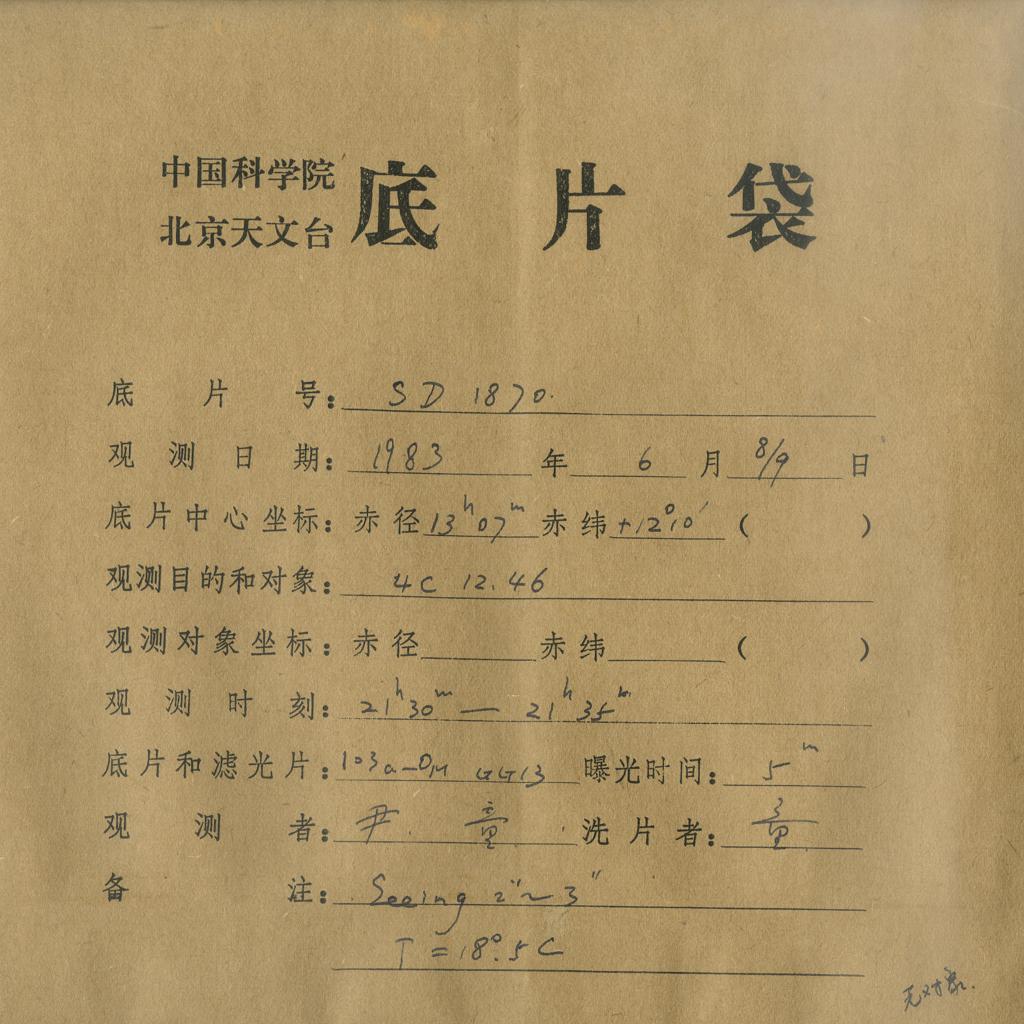 中国科学院
北京天文台
底片袋
底片号: SD 1870.
观测日期: 1983 年 6 月 8/9 日
底片中心坐标: 赤径 13h07m 赤纬 +12°10′ ( )
观测目的和对象: 4C 12.46
观测对象坐标: 赤径 赤纬 ( )
观测时刻: 21h30m — 21h35m
底片和滤光片: 103a-D GG13 曝光时间: 5m
观测者: 尹. 童. 洗片者: 童
备注: Seeing 2″~3″
T = 18°.5 C
无对象.